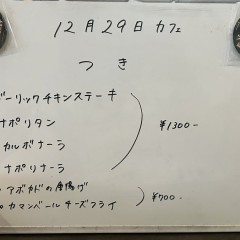 12月29日カフェ
つき
ガーリックチキンステーキ
ナポリタン
カルボナーラ
ナポリナーラ
¥1300-
アボカドの唐揚げ
カマンベールチーズフライ
¥700-